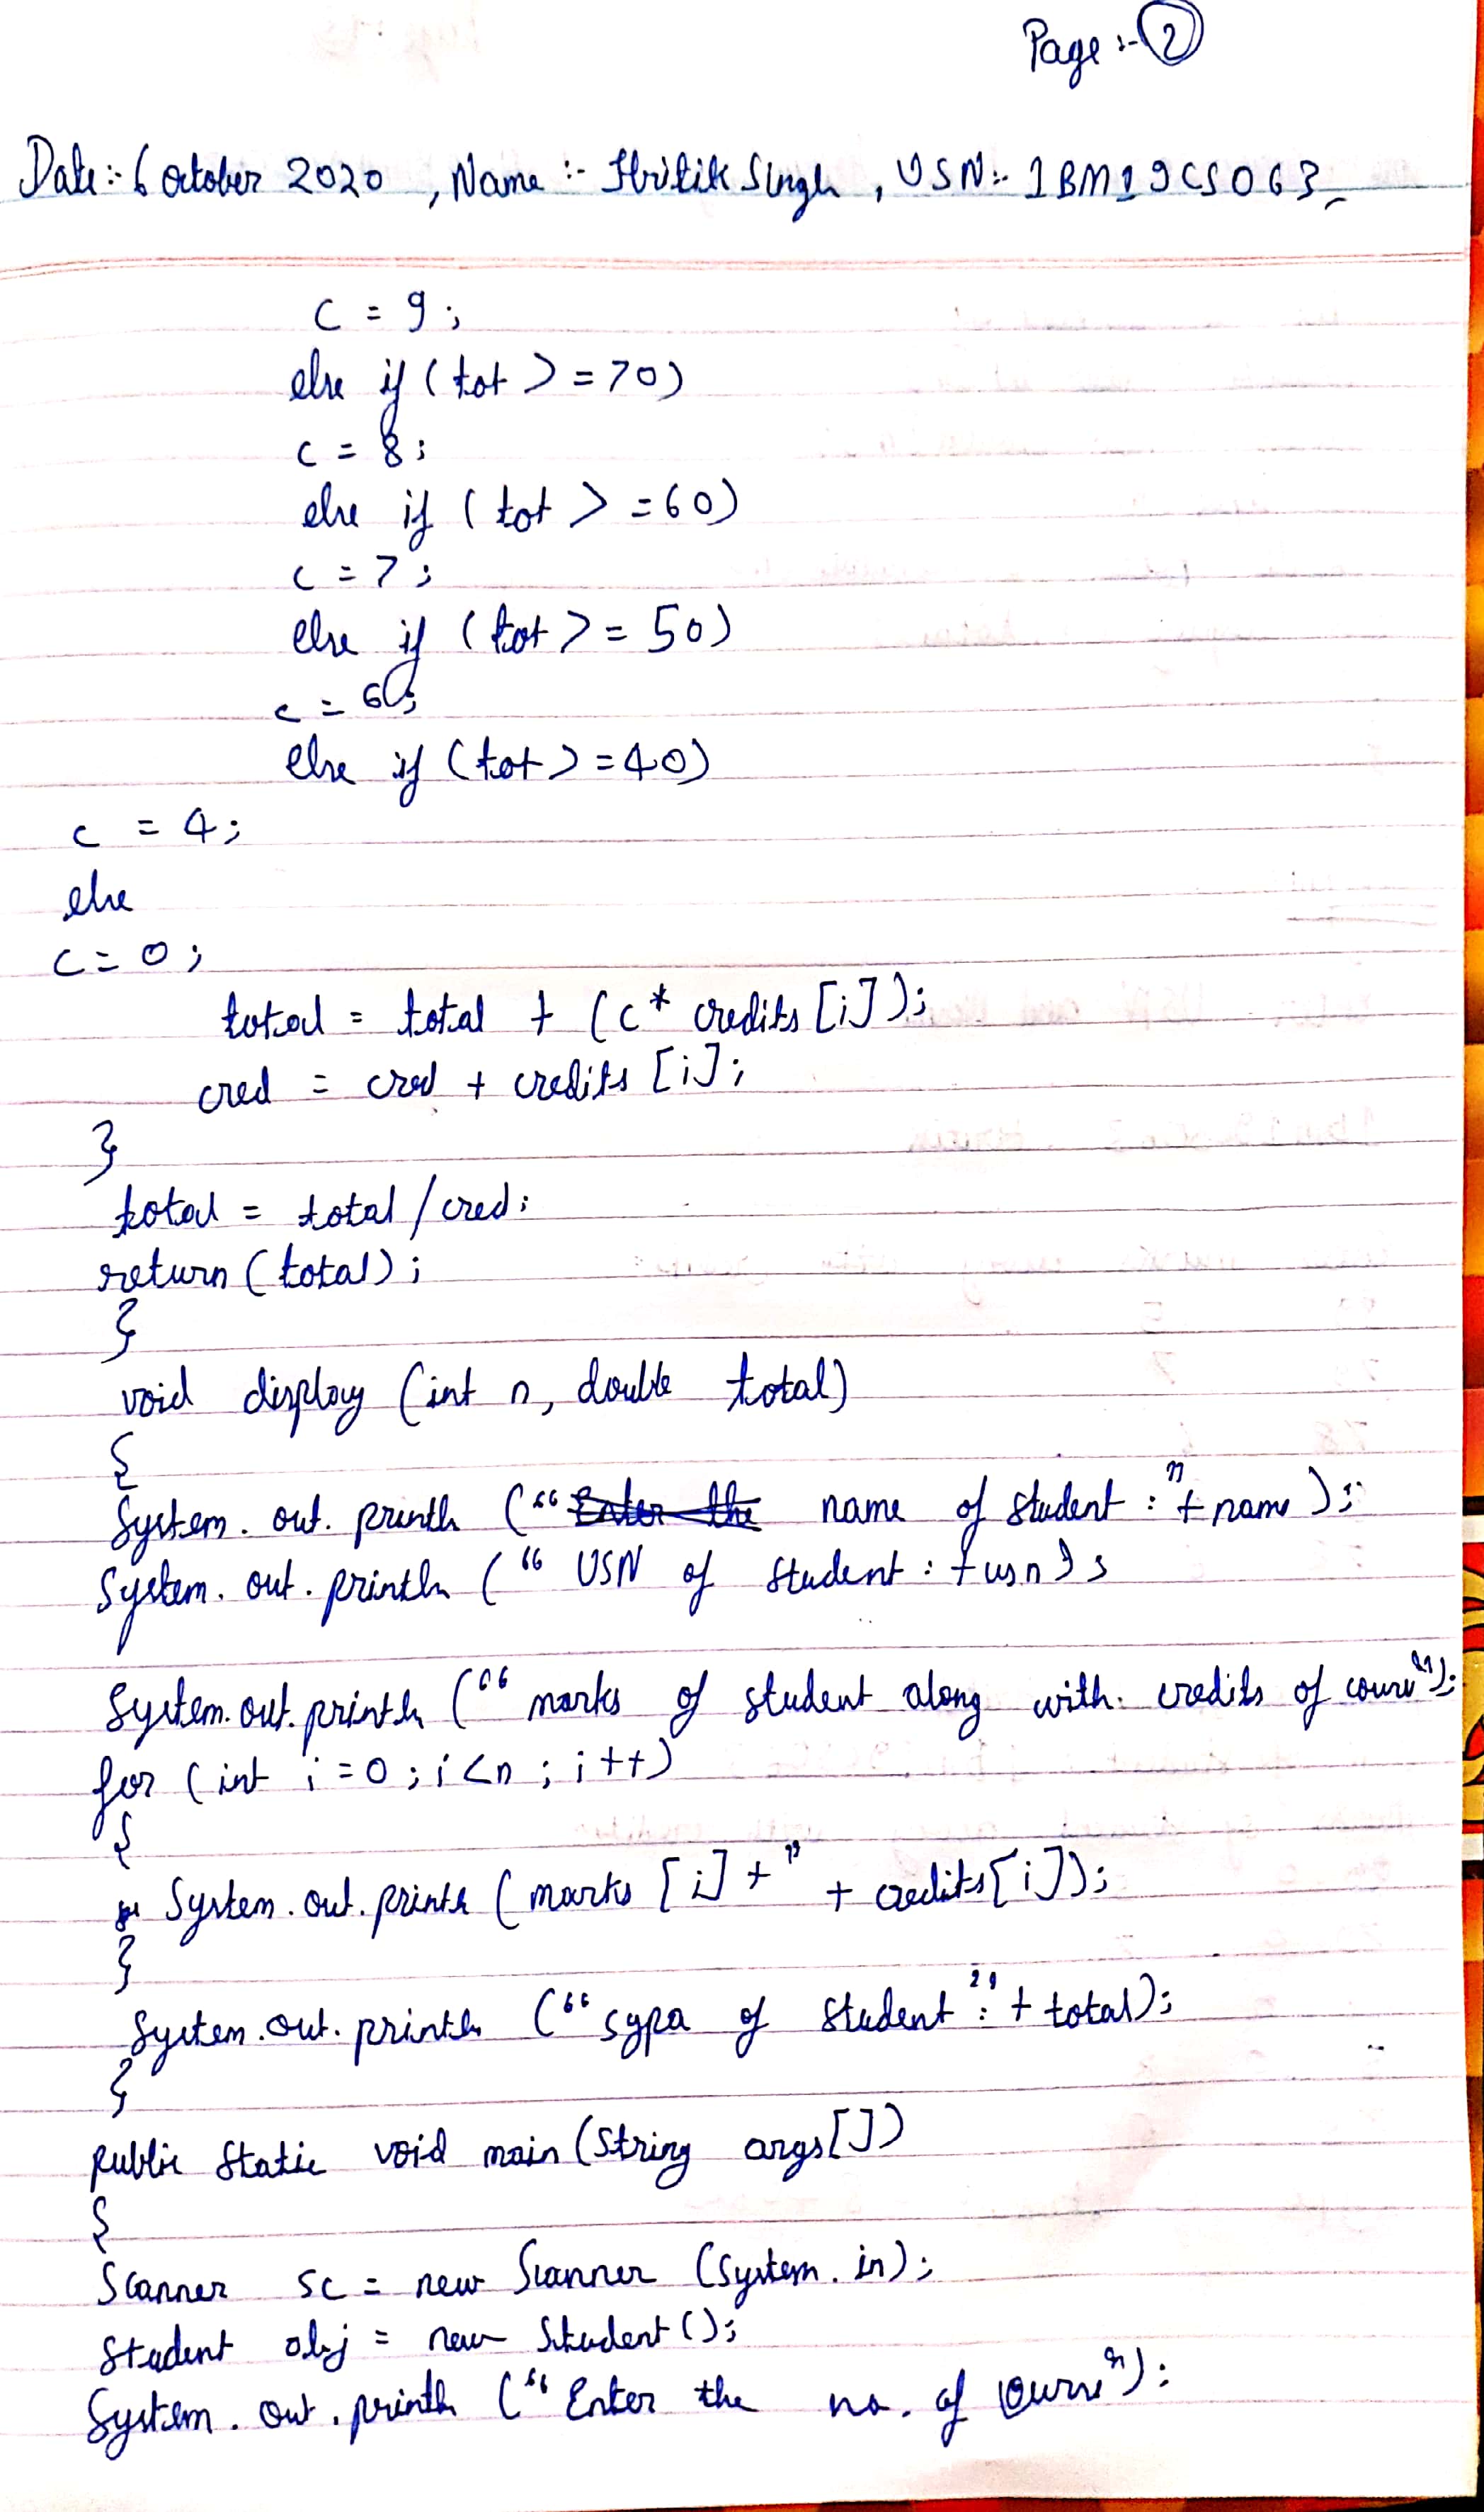 Page :- 2
Date :- 6 october 2020 , Name :- Hritik Singh , USN :- 1BM19CS063
c = 9 ;
else if ( tot > = 70 )
c = 8 ;
else if ( tot > = 60 )
c = 7 ;
else if ( tot > = 50 )
c = 6 ;
else if ( tot > = 40 )
c = 4 ;
else
c = 0 ;
total = total + ( c * credits [i] ) ;
cred = cred + credits [i] ;
}
total = total / cred ;
return ( total ) ;
}
void display ( int n, double total )
{
System. out. println ( " Enter the name of student : " + name ) ;
System. out. println ( " USN of student : + usn ) ;
System. out. println ( " marks of student along with credits of course " ) ;
for ( int i = 0 ; i < n ; i ++ )
{
System. out. println ( marks [ i ] + " + credits [ i ] ) ;
}
System. out. println ( " sgpa of student : " + total ) ;
}
public static void main ( String args [ ] )
{
Scanner sc = new Scanner ( System. in ) ;
Student obj = new Student ( ) ;
System. out. println ( " Enter the no. of course " ) ;